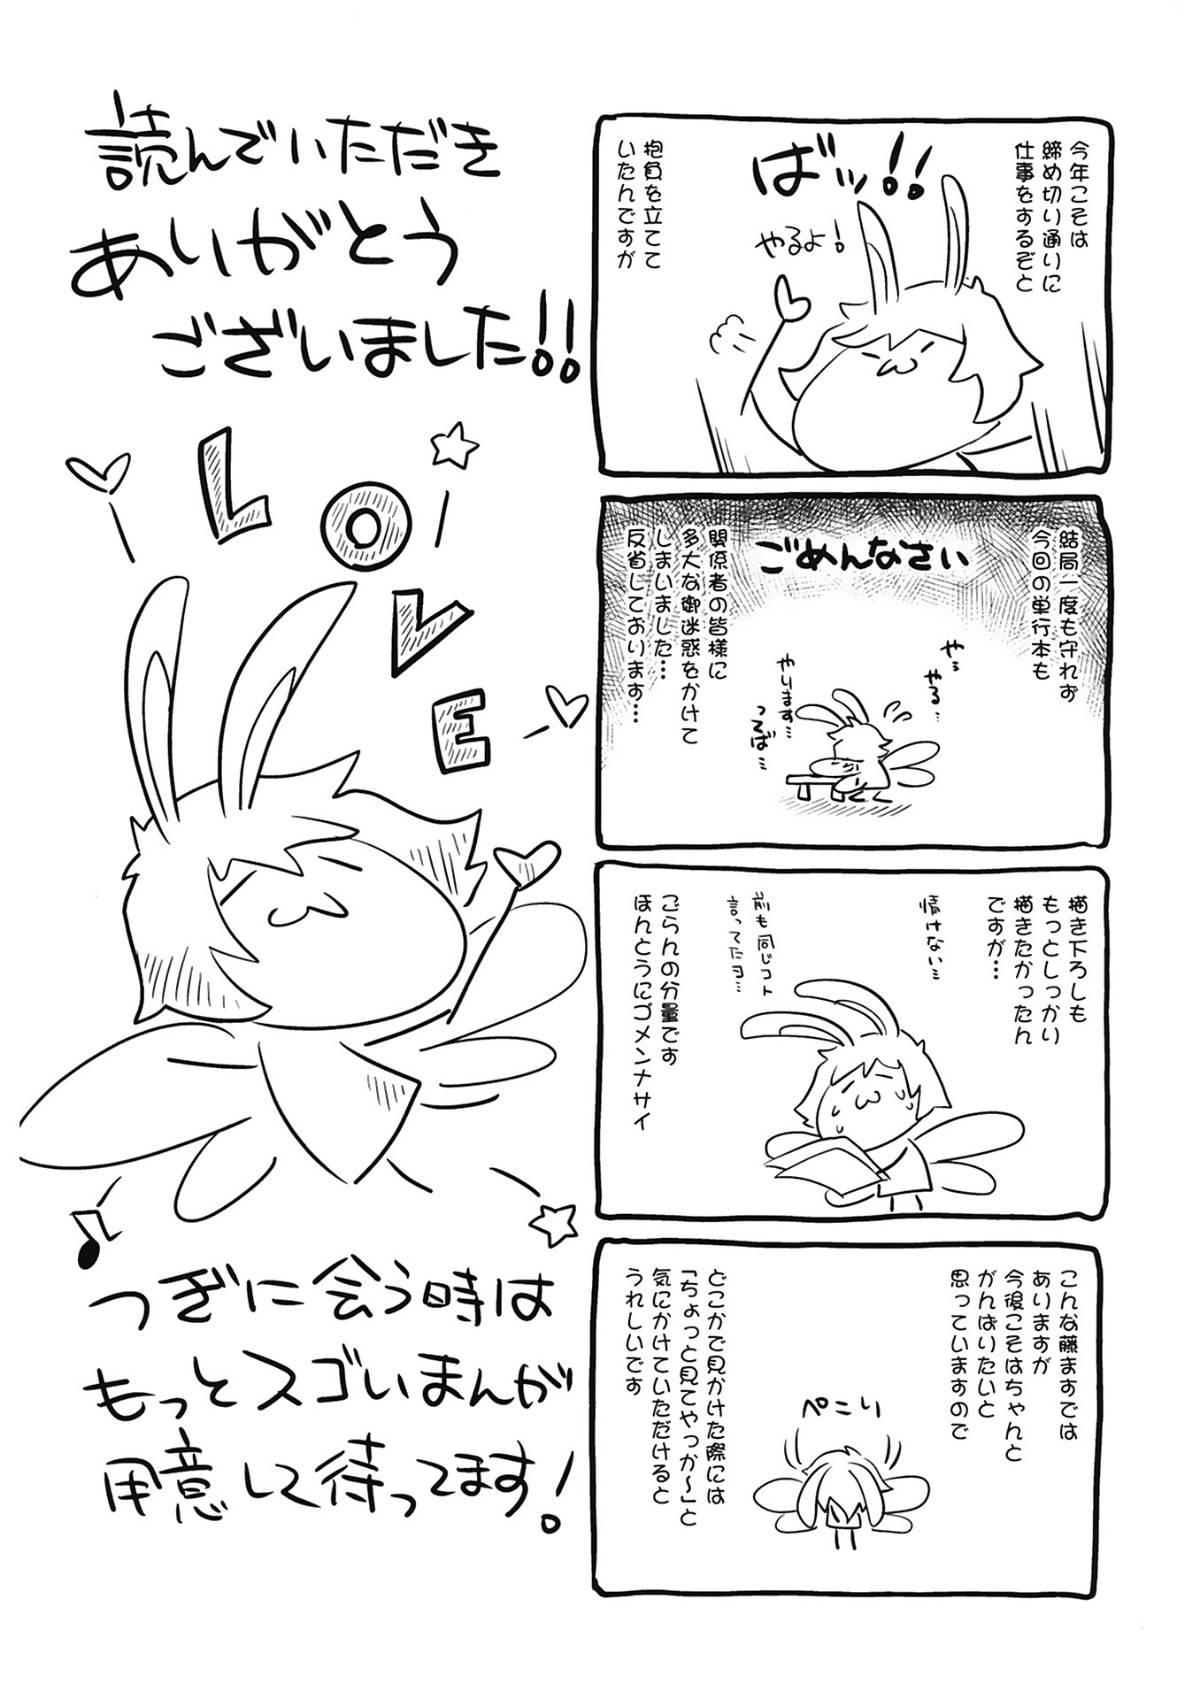 今年こそは
締め切り通りに
仕事をするぞと
ばッ!!
やるよ!
抱負を立てて
いたんですが
結局一度も守れず
今回の単行本も
ごめんなさい
や…
やる…
やります…
つるば…
関係者の皆様に
多大な御迷惑をかけて
しまいました…
反省しております…
描き下ろしも
もっとしっかり
描きたかったん
ですが…
情けない…
前も同じコト
言ってたヨ…
ごらんの分量です
ほんとうにゴメンナサイ
こんな藤ますでは
ありますが
今後こそはちゃんと
がんばりたいと
思っていますので
ぺこり
どこかで見かけた際には
「ちょっと見てやっか〜」と
気にかけていただけると
うれしいです
読んでいただき
ありがとう
ございました!!
LOVE
つぎに会う時は
もっとスゴいまんが
用意して待ってます!